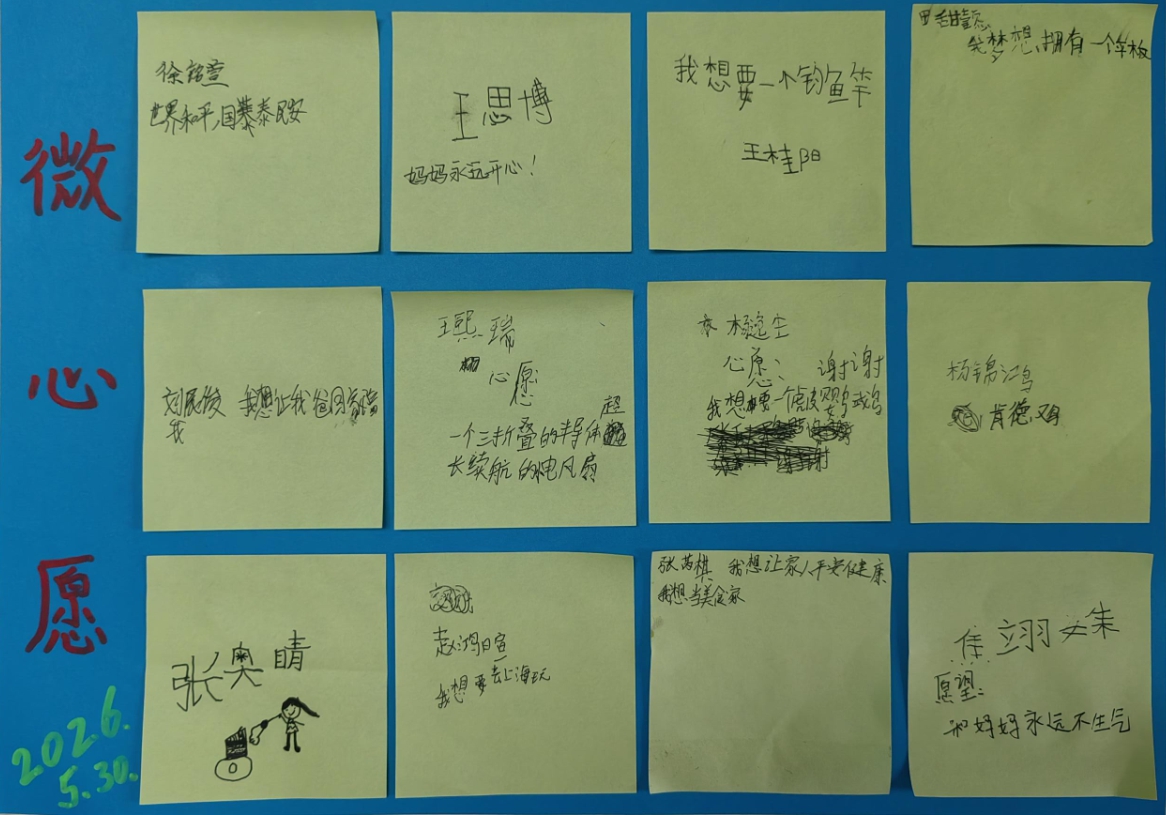 微
心
愿
2026.
5.30.
世界和平,国泰民安
王思博
妈妈永远开心!
我想要一个钓鱼竿
王桂阳
我梦想,拥有一个车板
我想让我爸回家陪
我
王熙瑞
心愿
一个三折叠的半导体超
长续航的电风扇
心愿:谢谢
我想要一个虎皮鹦鹉
杨锦鸿
肯德鸡
张奥晴
我想要去上海玩
张芮棋 我想让家人平安健康
我想当美食家
愿望:
和妈妈永远不生气